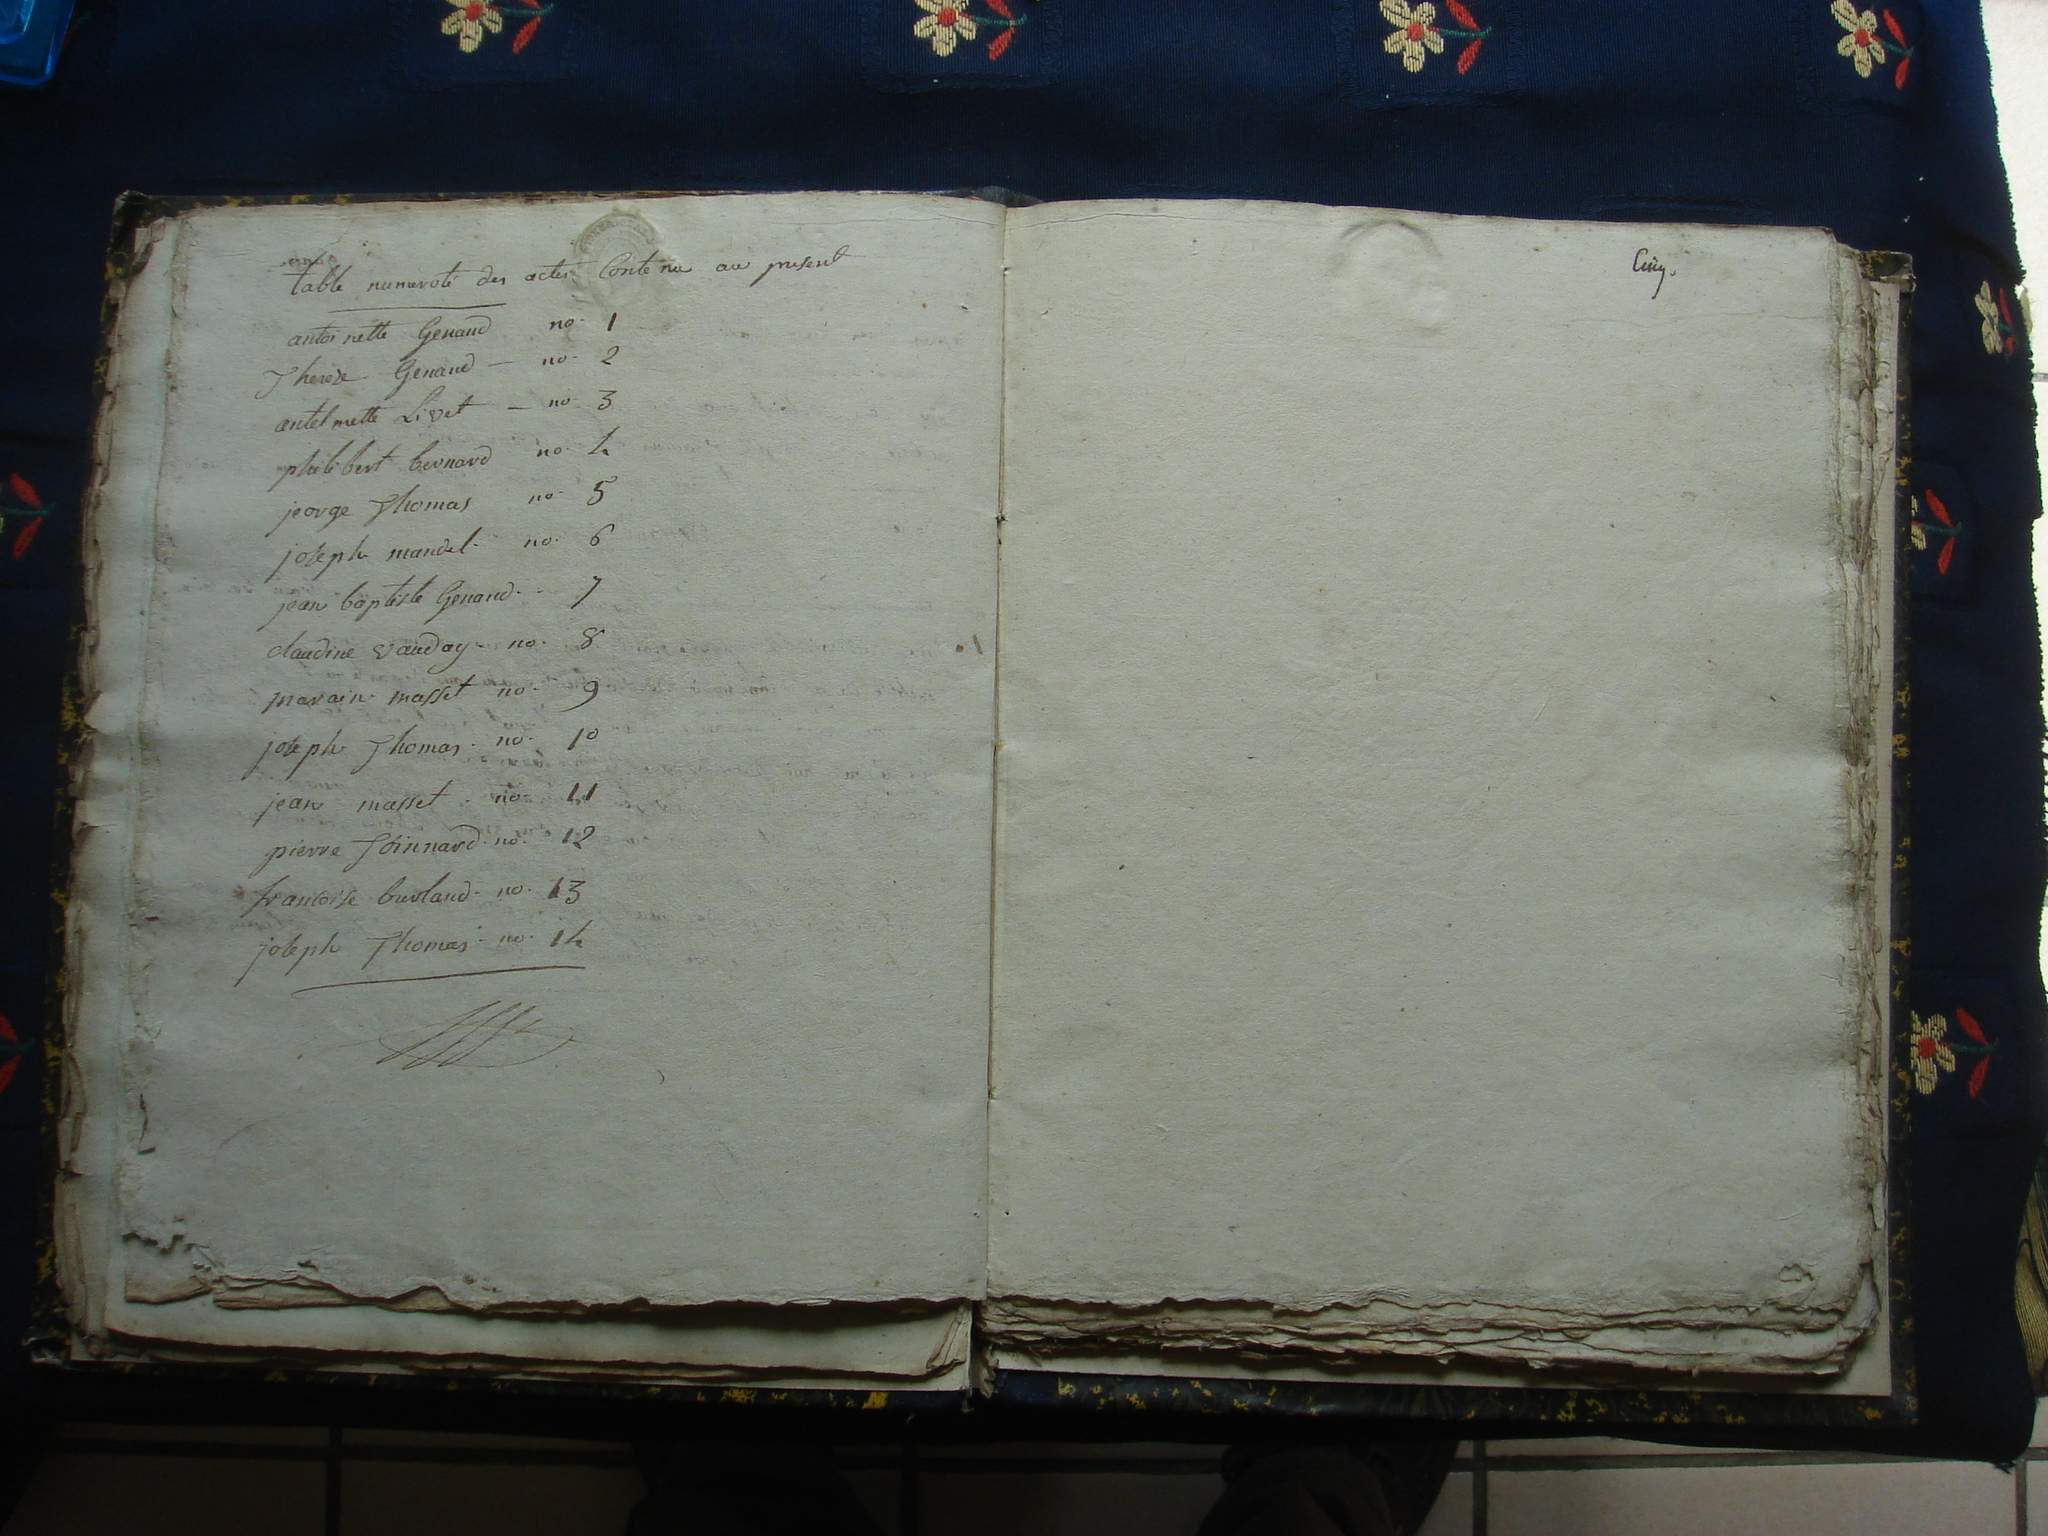 table numeroté des actes Contenu au present
antoinette Genaud no. 1
Therese Genaud - no. 2
antelmette Livet - no. 3
philibert bernard no. 4
jeorge Thomas no. 5
joseph mandel. no. 6
jean baptiste Genaud - - 7
claudine vauday - no. 8
masset no. 9
joseph Thomas. no. 10
jean masset. no. 11
pierre no. 12
francoise burland - no. 13
joseph Thomas - no. 14
Cinq.